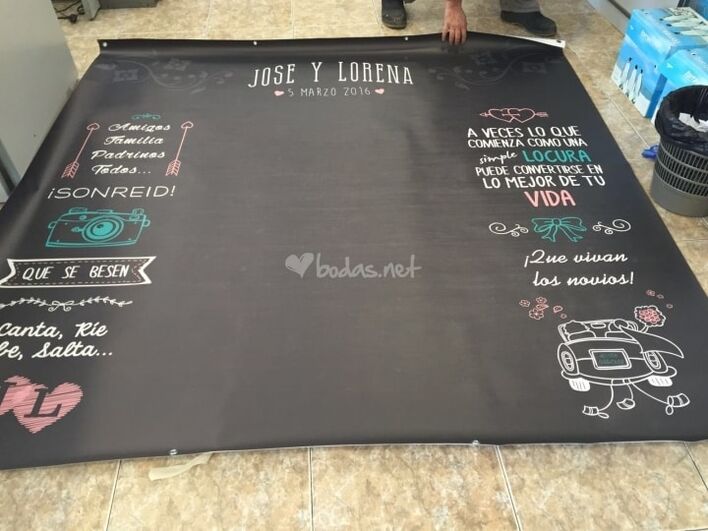 JOSE Y LORENA
5 MARZO 2016
Amigos
Familia
Padrinos
Todos...
¡SONREID!
QUE SE BESEN
Canta, Ríe
be, Salta...
L
A VECES LO QUE
COMIENZA COMO UNA
simple LOCURA
PUEDE CONVERTIRSE EN
LO MEJOR DE TU
VIDA
¡Que vivan
los novios!
bodas.net